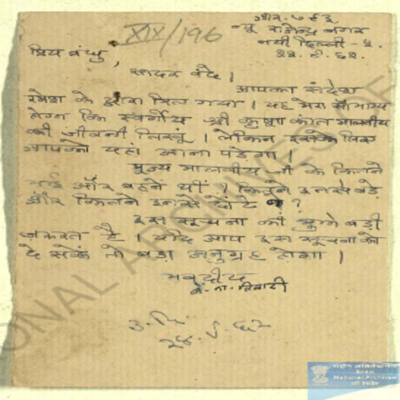 XIX/196
आर. 783
न्यू राजेन्द्र नगर
नयी दिल्ली - 5.
22. 5. 62.
प्रिय बंधु,
सादर वंदे।
आपका संदेश
रमेश के द्वारा मिल गया। यह मेरा सौभाग्य
होगा कि स्वर्गीय श्री कृष्ण कांत मालवीय
की जीवनी लिखूं। लेकिन इसके लिए
आपको यहां आना पड़ेगा।
पूज्य मालवीय जी के कितने
भाई और बहनें थीं। कितने उनसे बड़े
और कितने उनसे छोटे थे?
इस सूचना की मुझे बड़ी
जरूरत है। यदि आप इस सूचना को
दे सकें तो बड़ा अनुग्रह होगा।
भवदीय
तिवारी
राष्ट्रीय अभिलेखागार
National Archives
of India